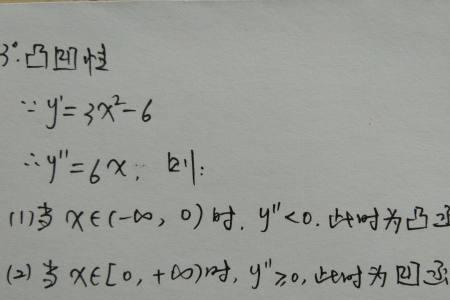 3°.凸凹性
∵ y'=3x²-6
∴ y''=6x; 则:
(1)当 x∈(-∞, 0) 时, y''<0. 此时为凸函
(2)当 x∈[0, +∞)时, y''≥0, 此时为凹函